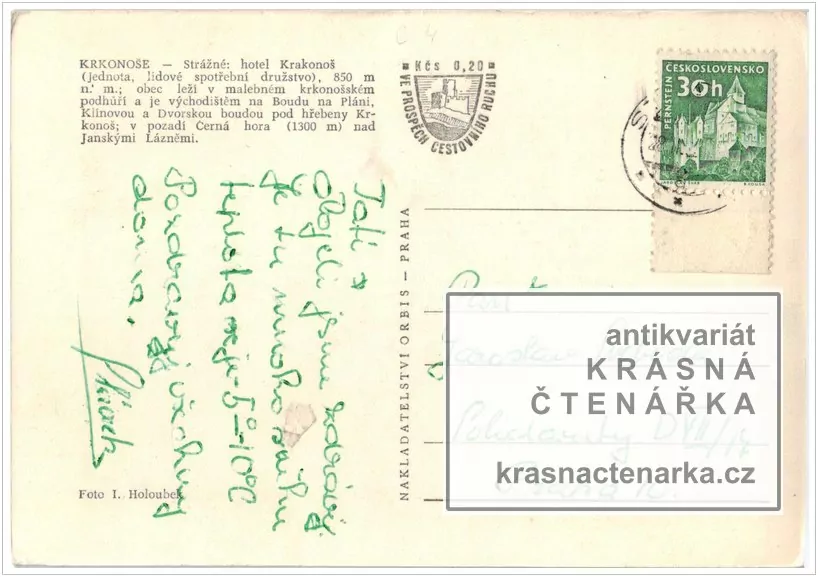 KRKONOŠE — Strážné: hotel Krakonoš
(Jednota, lidové spotřební družstvo), 850 m
n. m.; obec leží v malebném krkonošském
podhůří a je východištěm na Boudu na Pláni,
Klínovou a Dvorskou boudou pod hřebeny Kr-
konoš; v pozadí Černá hora (1300 m) nad
Janskými Lázněmi.
C 4
Kčs 0,20
VE PROSPĚCH CESTOVNÍHO RUCHU
ČESKOSLOVENSKO
30h
PERNŠTEJN
Tati
jsme zdrávi
je tu mnoho sněhu
teplota je -5°-10°C
Pozdravuj všechny
doma.
Foto I. Holoubek
NAKLADATELSTVÍ ORBIS — PRAHA
Pan
antikvariát
KRÁSNÁ
ČTENÁŘKA
krasnactenarka.cz